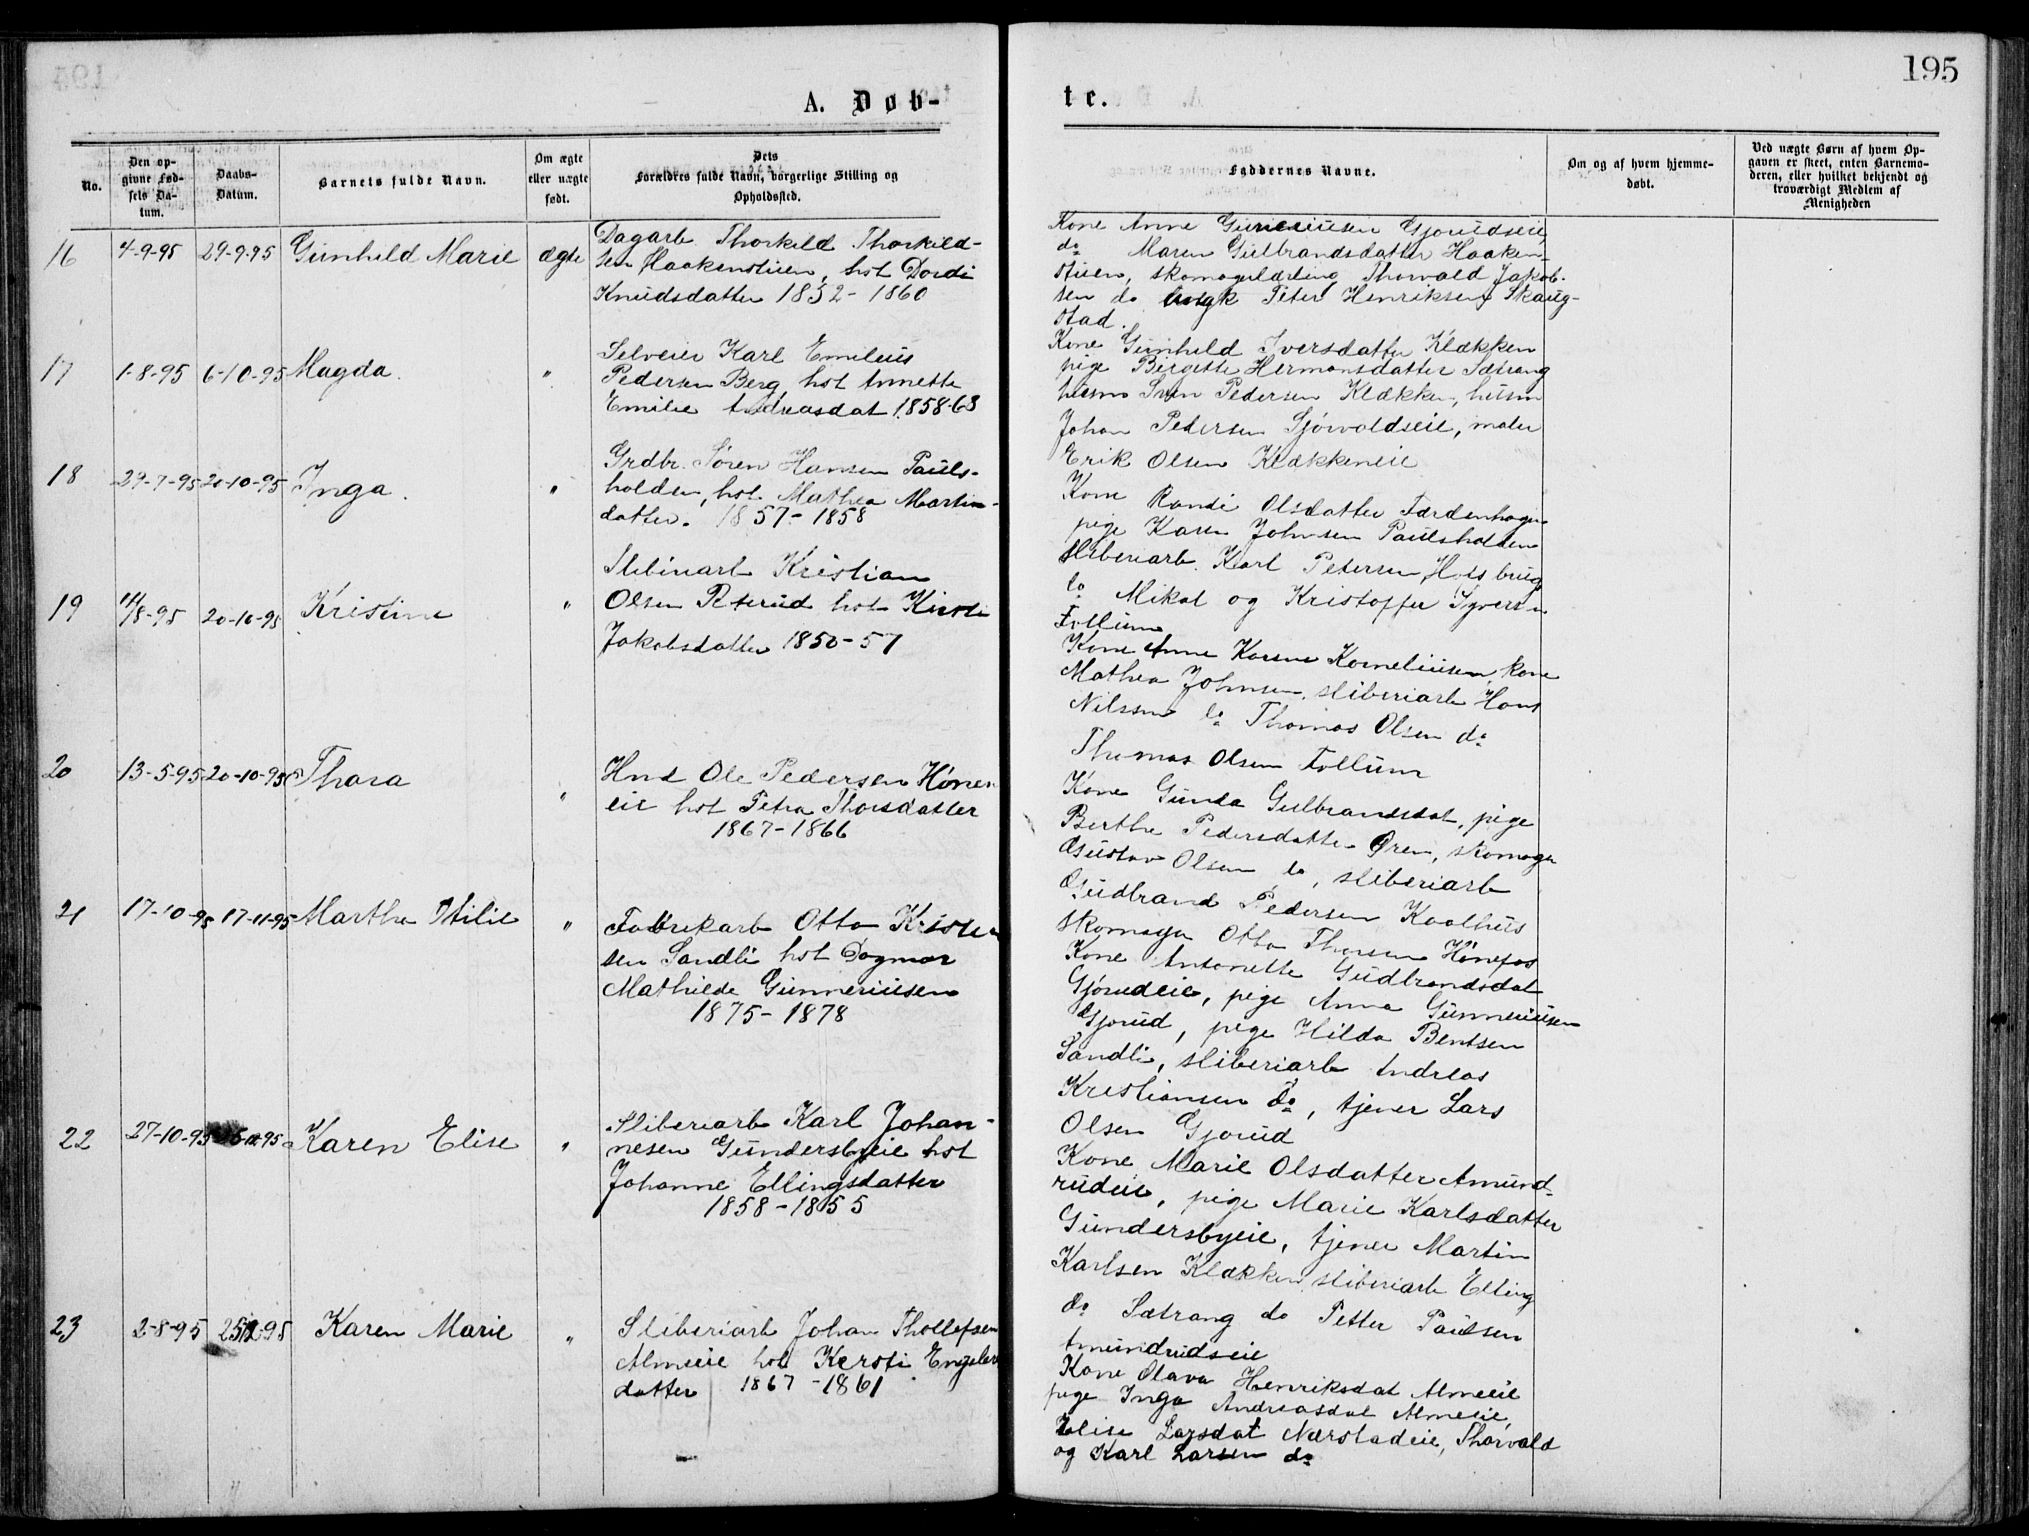 195
A. Døb-
te.
No.
Den op-
givne Fød-
sels Da-
tum.
Daabs-
Datum.
Barnets fulde Navn.
Om ægte
eller uægte
født.
Dets
Forældres fulde Navn, borgerlige Stilling og
Opholdssted.
Faddernes Navne.
Om og af hvem hjemme-
døbt.
Ved uægte Børn af hvem Op-
gaven er skeet, enten Barnemo-
deren, eller hvilket bekjendt og
troværdigt Medlem af
Menigheden
16 4-9-95 29-9-95 Gunhild Marie ægte
Dagarb Thorkild Thorkild-
sen Haakenstuen, hst Dordi
Knudsdatter 1852-1860
Kone Anne Gunerius​en Gjørudseie,
do Maren Gulbrandsdatter Haaken-
stuen, skomagerlærling Thorvald Jakob-
sen do Peter Henriksen Skaug-
stad.
17 1-8-95 6-10-95 Magda. "
Selveier Karl Emilius
Pedersen Berg, hst Annette
Emilie Andreasdat 1858-63
Kone Gunhild Iversdatter Klækken
pige Birgitte Hermansdatter Sætrang
husm Sven Pedersen Klækken, husm
Johan Pedersen Sjørvoldseie, maler
Erik Olsen Klækkeneie
18 29-7-95 20-10-95 Inga. "
Grdbr. Søren Hansen Pauls-
holden, hst. Mathea Martin-
datter. 1857-1858
Kone Randi Olsdatter Færdenhagen
pige Karen Johnsen Paulsholden
sliberiarb. Karl Petersen Hofsbrug
do Mikal og Kristoffer Syversen
Follum
19 14/8-95 20-10-95 Kristine "
Sliberiarb Kristian
Olsen hst Kirsti
Jakobsdatter 1850-57
Kone Anne Karine Korneliusen, kone
Mathea Johnsen, sliberiarb Hans
Nilssen do Thomas Olsen do
Thomas Olsen Follum
20 13-5-95 20-10-95 Thora "
Hmd Ole Pedersen Hønen
eie hst Petra Thorsdatter
1867-1866
Kone Gunda Gulbrandsdat, pige
Berthe Pedersdatter Øren, skomager
Gustav Olsen do, sliberiarb
Gudbrand Pedersen Kaalhus
skomager Otto Thorsen Hønefos
21 17-10-95 17-11-95 Marthe Otilie "
Fabrikarb Otto Kristen
sen Sandli hst Dagmar
Mathilde Gunneriusen
1875-1878
Kone Antonette Gudbrandsdat
Gjørudeie, pige Anna Gunneriusen
Gjørud, pige Hilda Bentsen
Sandli, sliberiarb Andreas
Kristiansen do, tjener Lars
Olsen Gjørud
22 27-10-95 Karen Elise "
Sliberiarb Karl Johan-
nesen Gundersbyeie hst
Johanne Ellingsdatter
1858-1855
Kone Marie Olsdatter Amund-
rudeie, pige Marie Karlsdatter
Gundersbyeie, tjener Martin
Karlsen Klækken, sliberiarb Elling
do Sætrang do Petter Paulsen
Amundrudseie
23 2-8-95 251295 Karen Marie "
Sliberiarb Johan Thollefsen
Almeie hst Kersti Engebr
datter 1867-1861
Kone Olava Henriksdat Almeeie
pige Inga Andreasdat Almeeie,
Elise Larsdat Nærstadeie, Thorvald
og Karl Larsen do